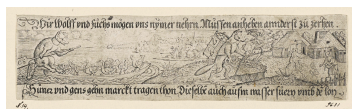 Wir Wolff vnd füchs mögen vns nymer nehrn. Müssen anheben annderst zu zerhen.
Hüner vnd gens gehn marckt tragen thon. Dieselbe auch aufm wasser fuern vmb de lon